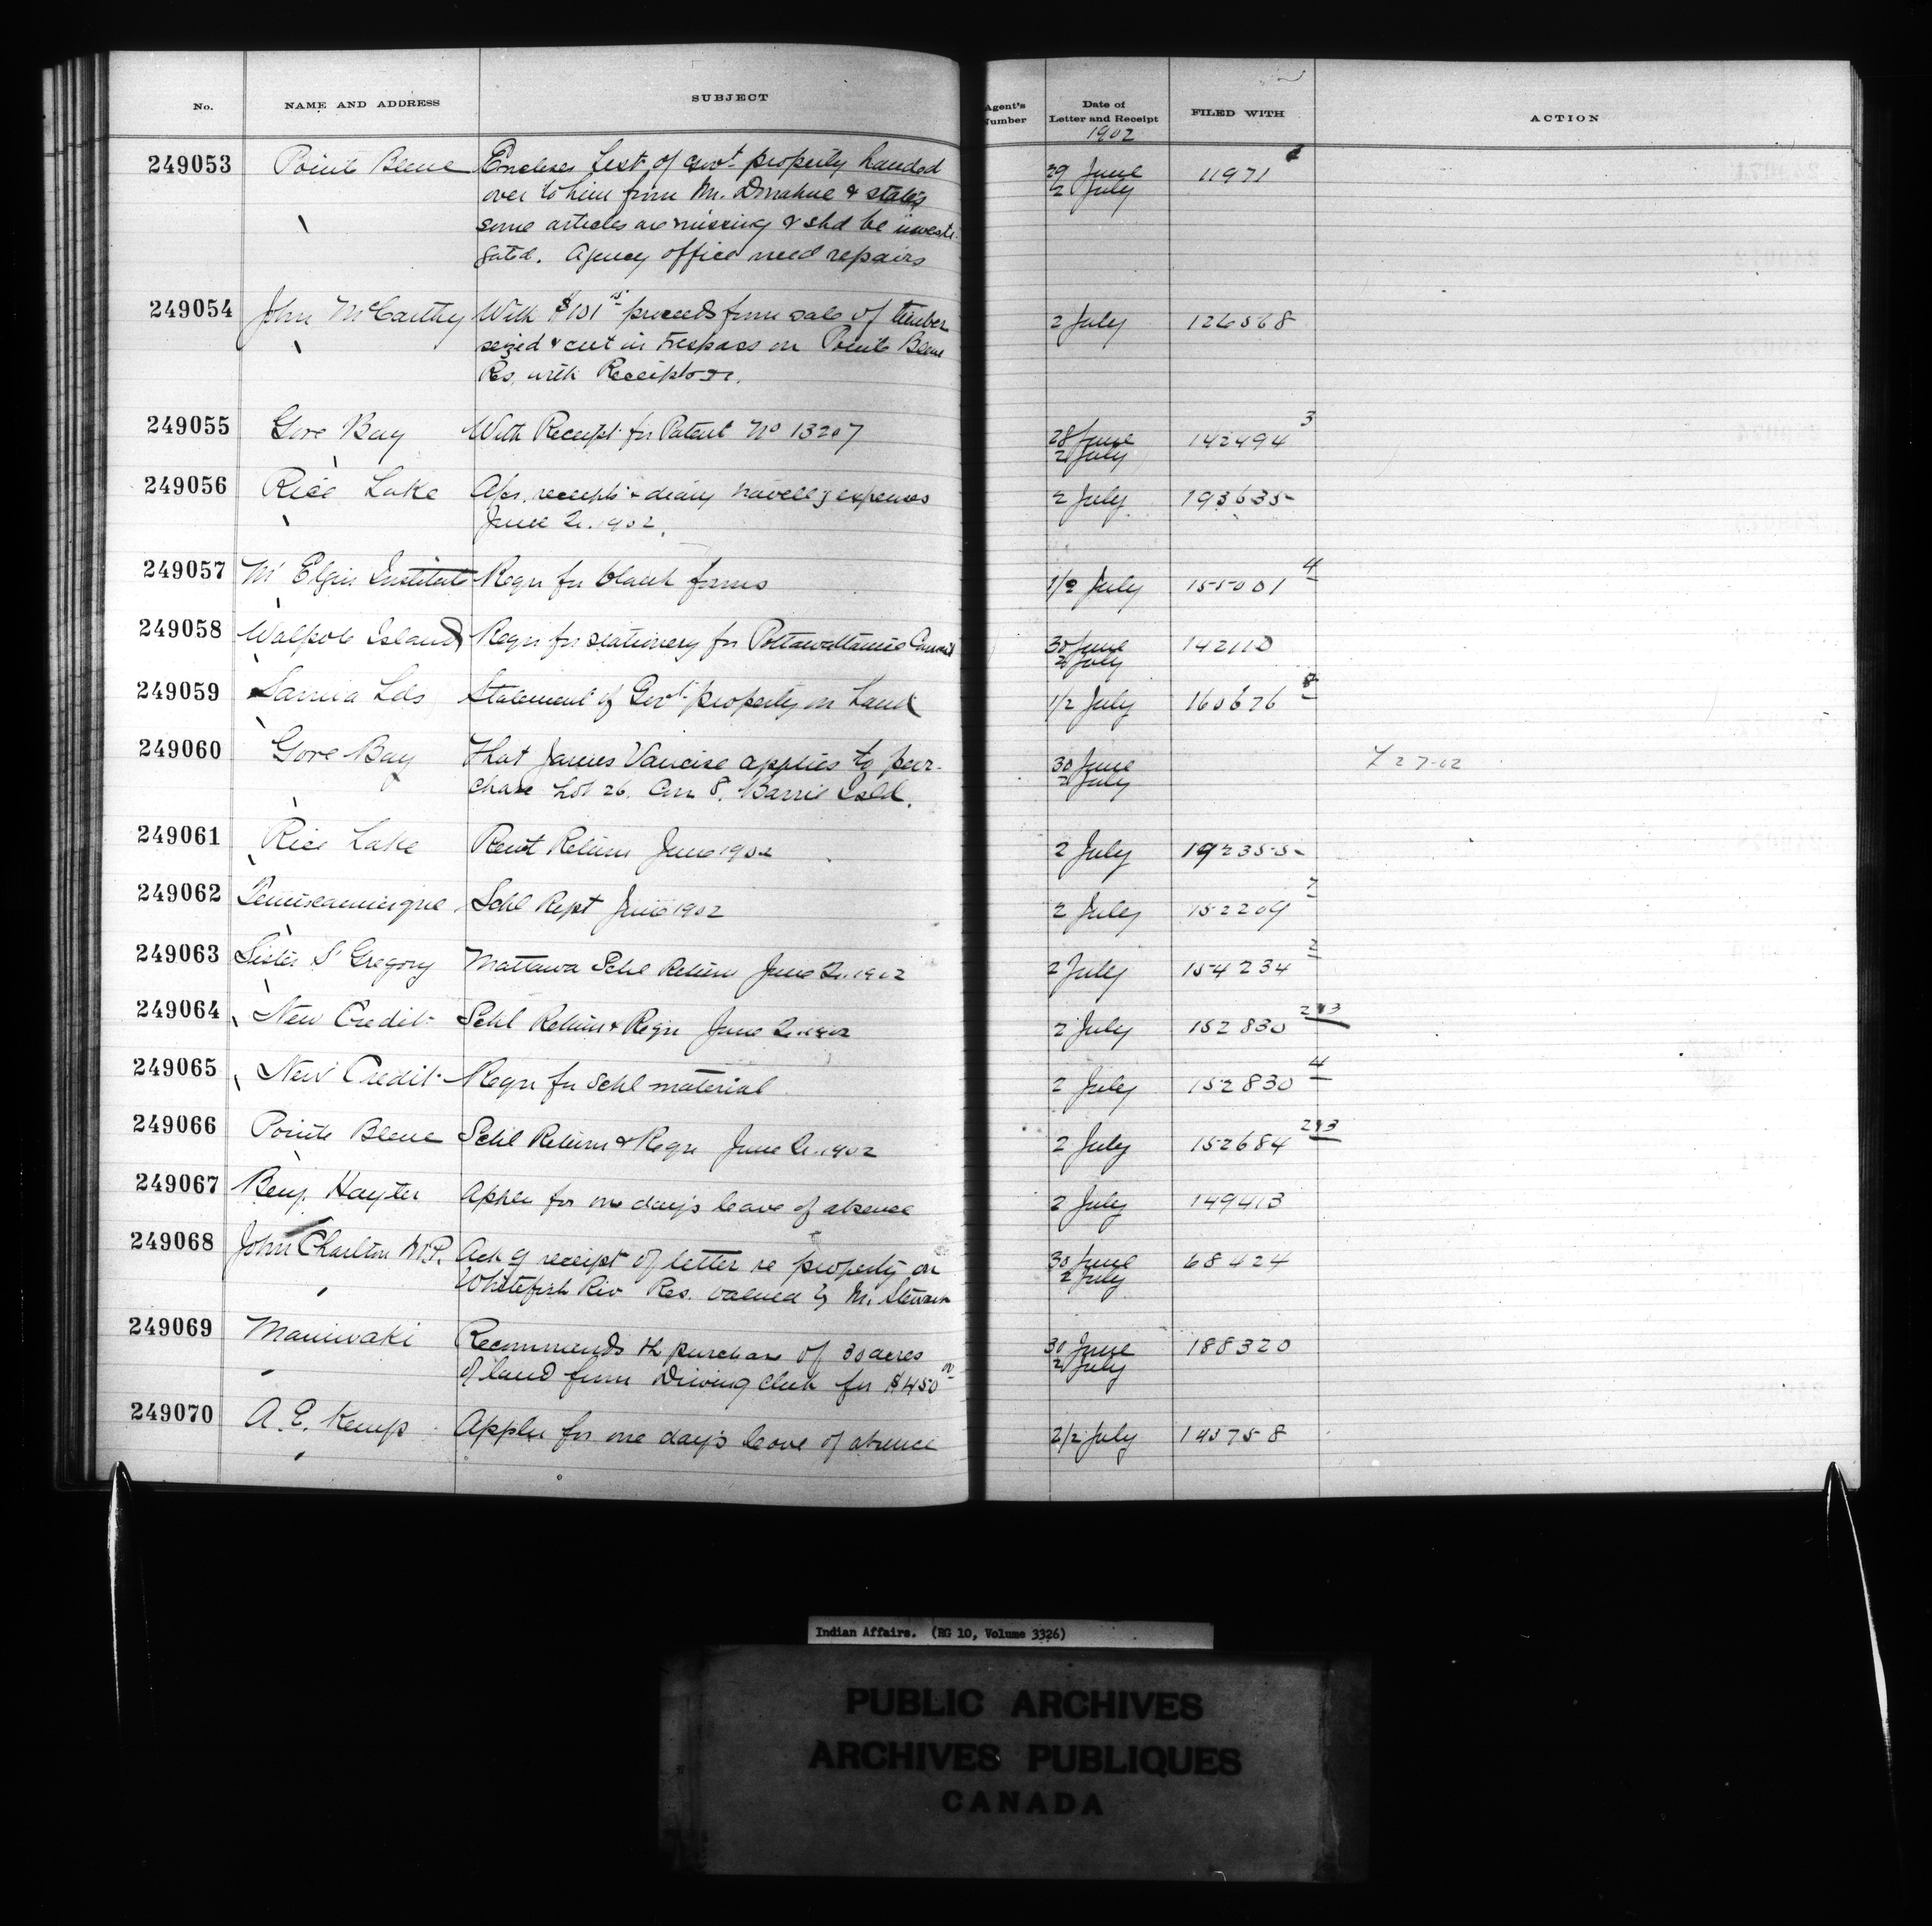 No. NAME AND ADDRESS SUBJECT Agent's Number Date of Letter and Receipt FILED WITH ACTION
1902
249053 Pointe Bleue Encloses List of Govt property handed 29 June 11971
over to him from Mr. Donahue & states 2 July
some articles are missing & shd be investi-
gated. Agency office need repairs
249054 John McCarthy With $101 proceeds from sale of timber 2 July 126568
seized & cut in trespass on Pointe Bleue
Res. with Receipt
249055 Gore Bay With Receipt for Patent No 13207 28 June 2 July 142494 3
249056 Rice Lake receipts & diary travellg expenses 2 July 193635
June Qr. 1902.
249057 Mt Elgin Institute Reqn for blank forms 1/2 July 155001 4
249058 Walpole Island Reqn for stationery for Pottawattamie Council 30 June 2 July 142110
249059 Sarnia Lds Statement of Govt property on hand 1/2 July 160676
249060 Gore Bay That James Vancise applies to pur- 30 June 2 July 27-02
chase Lot 26. Con 8. Barrie Isld.
249061 Rice Lake Rent Return June 1902 2 July 192355
249062 Temiscamingue Schl Rept June 1902 2 July 152209 7
249063 Sister St Gregory Mattawa Schl Return June Qr. 1902 2 July 154234 2
249064 New Credit Schl Return & Reqn June Qr. 1902 2 July 152830 2 & 3
249065 New Credit Reqn for Schl material 2 July 152830 4
249066 Pointe Bleue Schl Return & Reqn June Qr. 1902 2 July 152684 2 & 3
249067 Benj. Hayter Appln for one day's leave of absence 2 July 149413
249068 John Charlton M.P. Ack g receipt of letter re property on 30 June 68424
Whitefish Riv Res. valued by Mr. Stewart 2 July
249069 Maniwaki Recommends the purchase of 30 acres 30 June 188320
of land from Driving Club for $450 2 July
249070 A. E. Kemp Appln for one day's leave of absence 2/2 July 143758
Indian Affairs. (RG 10, Volume 3326)
PUBLIC ARCHIVES
ARCHIVES PUBLIQUES
CANADA